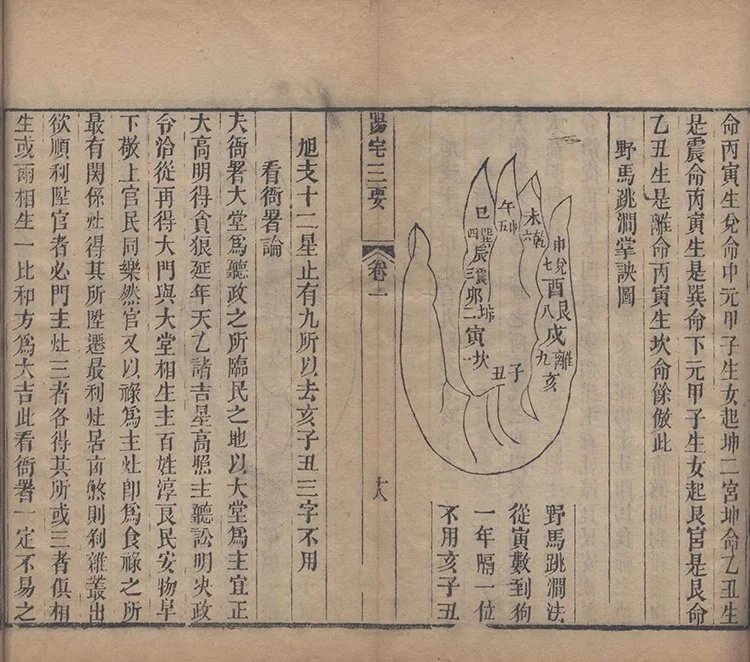 命丙寅生兌命中元甲子生女起坤二宮坤命乙丑生
是震命丙寅生是巽命下元甲子生女起艮宮是艮命
乙丑生是離命丙寅生坎命餘倣此
野馬跳澗掌訣圖
申兌七
酉艮八
戌離九
亥
未乾六
午中五
巳巽四
辰震三
卯坤二
寅坎一
丑
子
野馬跳澗法
從寅數到狗
一年隔一位
不用亥子丑
陽宅三要
卷一
十八
旭支十二星止有九所以去亥子丑三字不用
看衙署論
夫衙署大堂爲聽政之所臨民之地以大堂爲主宜正
大高明得貪狼延年天乙諸吉星高照主聽訟明决政
令洽從再得大門與大堂相生主百姓淳良民安物阜
下敬上官民同樂然官又以祿爲主灶卽爲食祿之所
最有関係灶得其所陞遷最利灶居凶煞則刹雜叢出
欲順利陞官者必門主灶三者各得其所或三者俱相
生或兩相生一比和方爲大吉此看衙署一定不易之